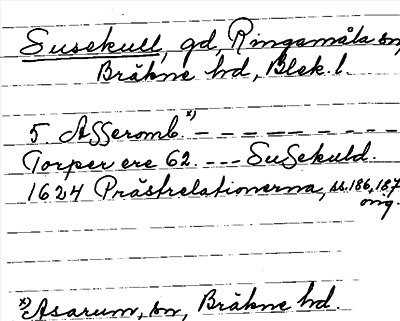 Susekull, gd, Ringamåla sn,
Bräkne hd, Blek. l.
5. Asseromb. x) – – – – – – – –
Torper ere 62. – – – Susekuld.
1624 Prästrelationerna, ss. 186, 187
orig.
x) Asarum, sn, Bräkne hd.